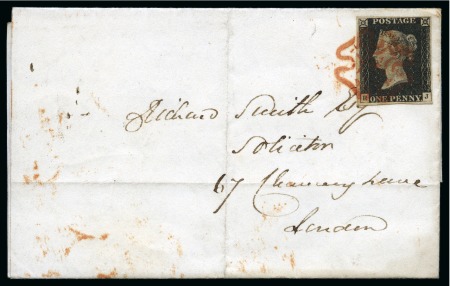 POSTAGE
ONE PENNY
J
Richard Smith Esq
Solicitor
67 Chancery Lane
London